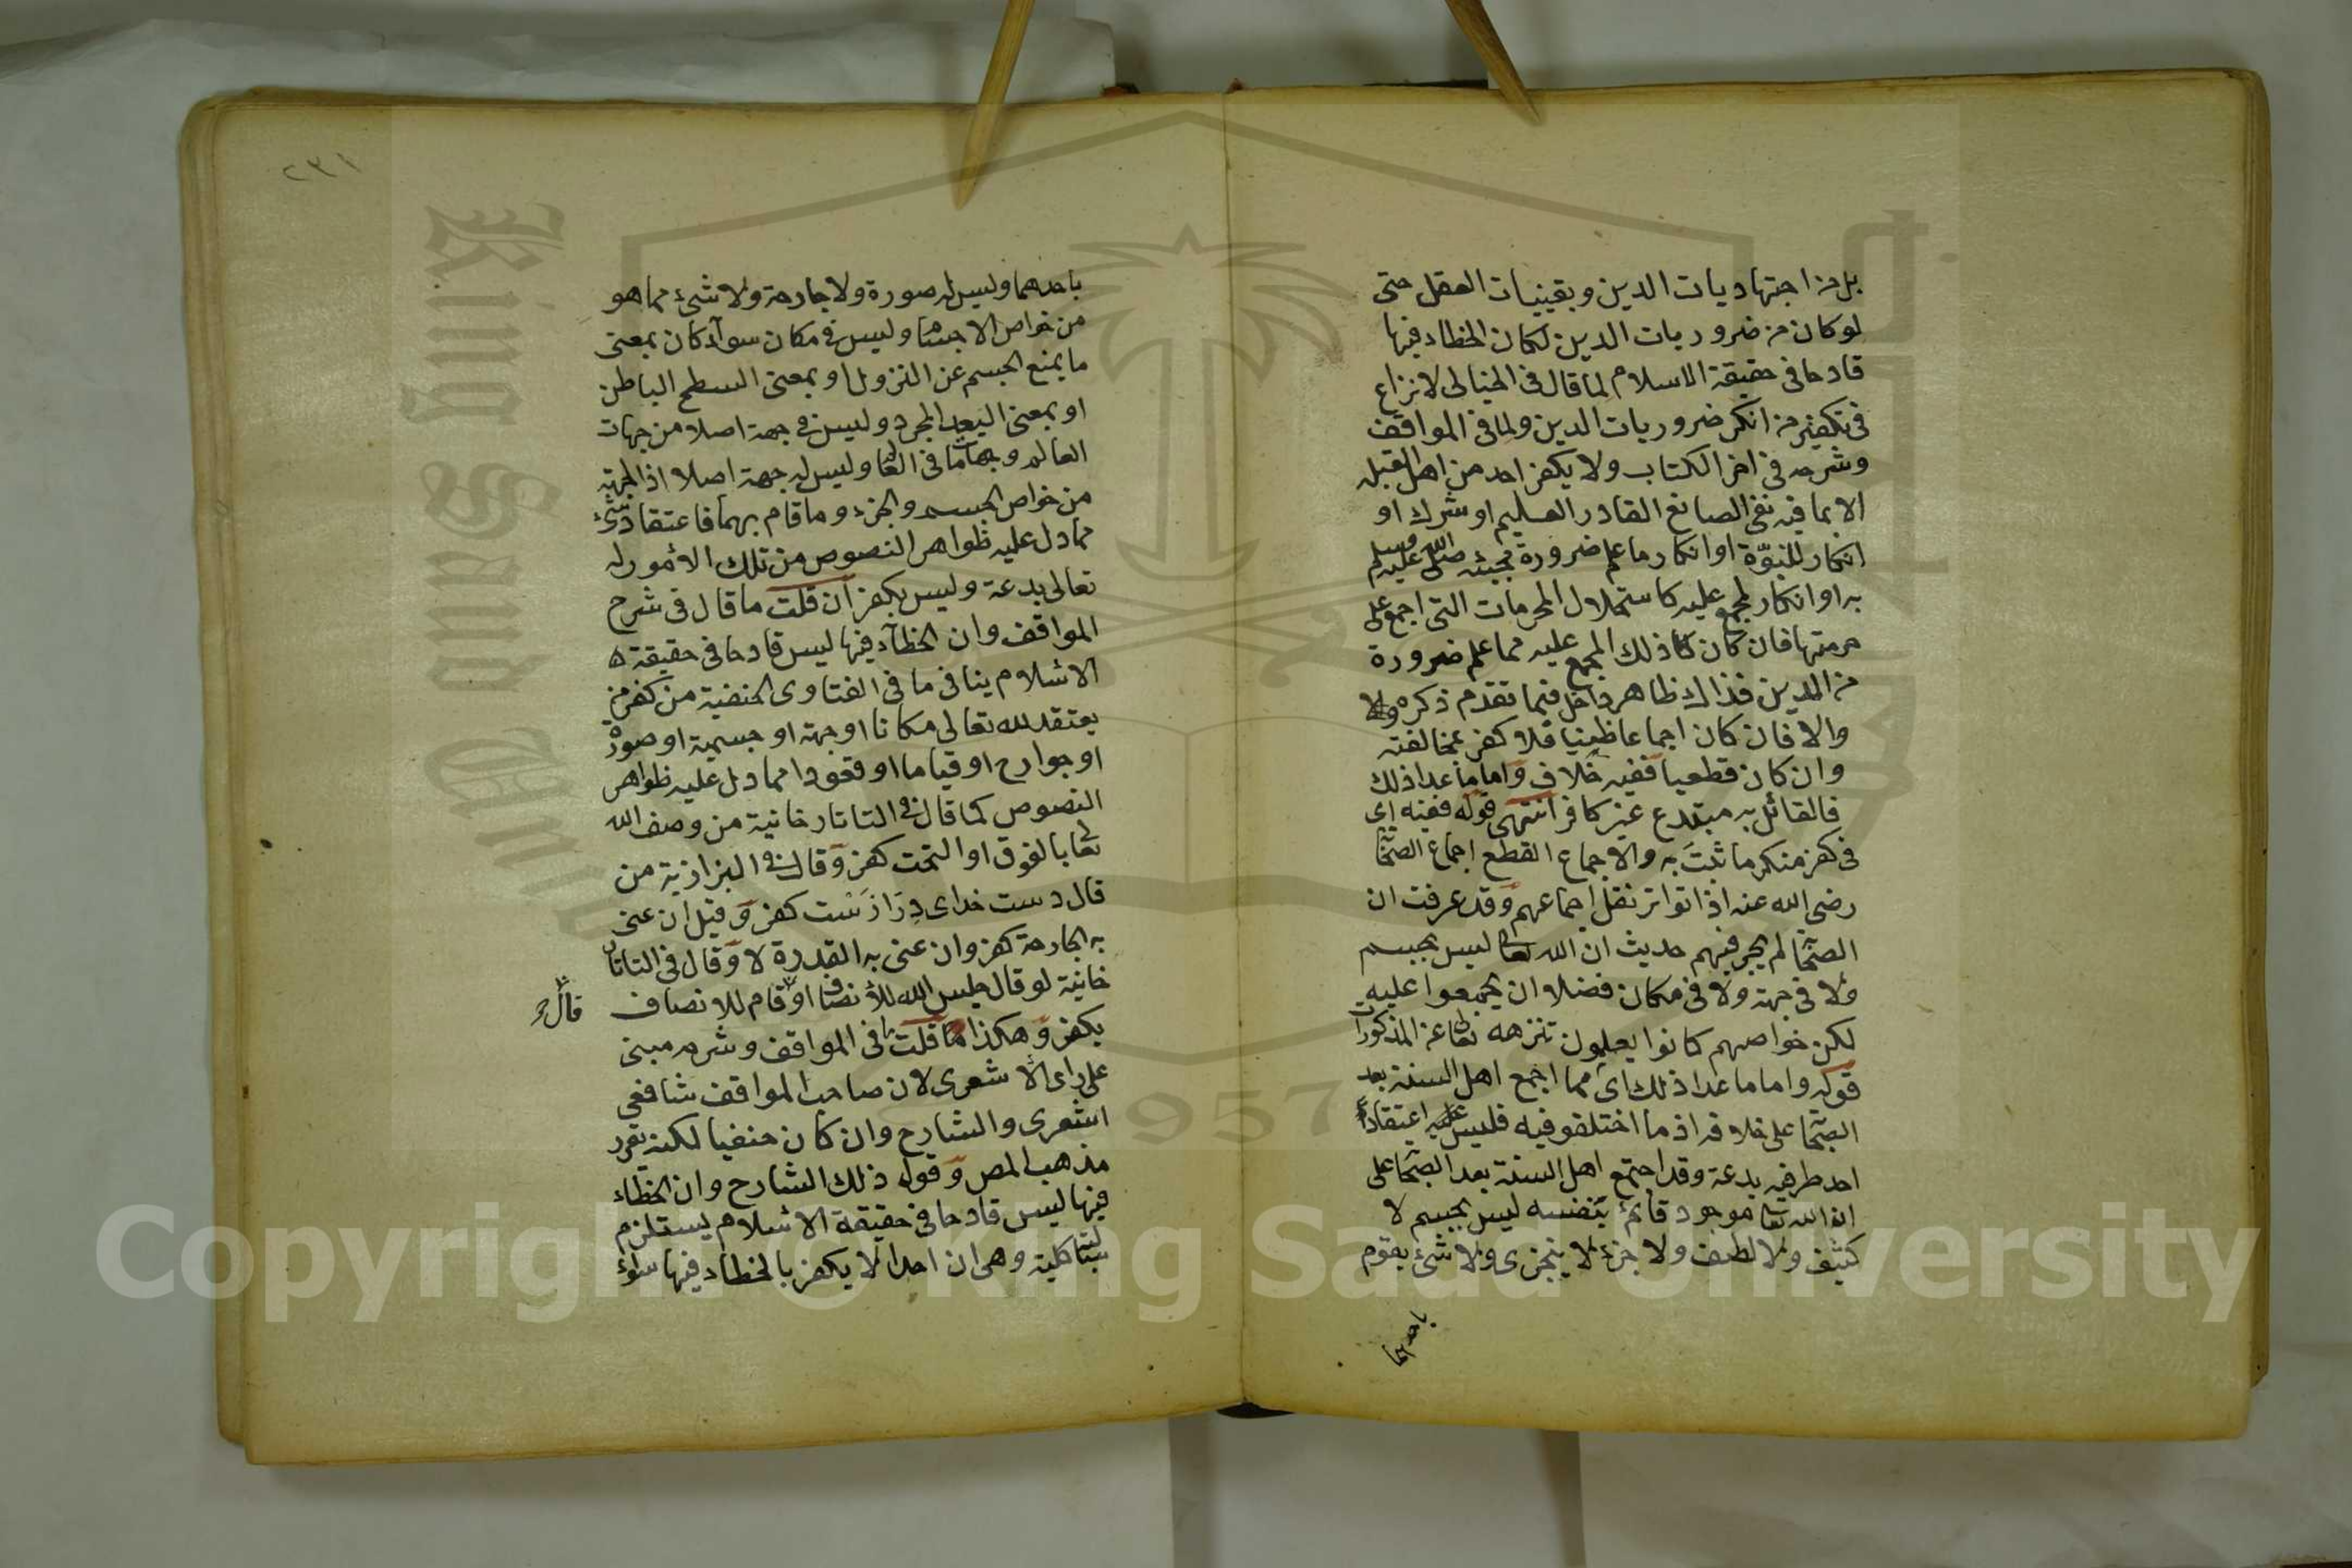 بل من اجتهاديات الدين وبقينيات العقل حتى
لو كان من ضروريات الدين لكان الخطاء فيها
قادحا فى حقيقة الاسلام لما قال فى الخيالى لا نزاع
فى تكفير من انكر ضروريات الدين ولما فى المواقف
وشرحه فى اخر الكتاب ولا يكفر احد من اهل القبله
الا بما فيه نفى الصانع القادر العليم او شرك او
انكار للنبوّة او انكار ما علم ضرورة مجيئه صلى الله عليه وسلم
به او انكار لمجمع عليه كاستحلال المحرمات التى اجمع على
حرمتها فان كان كان ذلك المجمع عليه مما علم ضرورة
من الدين فذاك ظاهر داخل فيما تقدم ذكره
والا فان كان اجماعا ظنيا فلا كفر بمخالفته
وان كان قطعيا ففيه خلاف واما ما عدا ذلك
فالقائل به مبتدع غير كافر انتهى قوله ففيه اى
فى كفر منكر ما ثبت به والاجماع القطع اجماع الصحا
رضى الله عنه اذا تواتر نقل اجماعهم وقد عرفت ان
الصحا لم يجر فيهم حديث ان الله تعا ليس بجسم
ولا فى جهة ولا فى مكان فضلا ان يجمعوا عليه
لكن خواصهم كانوا يعلمون تنزهه تعالى عن المذكورات
قوله واما ما عدا ذلك اى مما اجمع اهل السنة بعد
الصحا على خلافه اذ ما اختلفو فيه فليس اعتقاد
احد طرفيه بدعة وقد اجتمع اهل السنة بعد الصحا على
ان الله تعا موجود قائم بنفسه ليس بجسم لا
كثيف ولا لطيف ولا جزء لا يتجزى ولا شئ يقوم
باحدهما
٢٣١
باحدهما وليس له صورة ولا جارحة ولا شئ مما هو
من خواص الاجسام وليس فى مكان سواء كان بمعنى
ما يمنع الجسم عن النزول او بمعنى السطح الباطن
او بمعنى البعد المجرد وليس فى جهة اصلا من جهات
العالم وجهات ما فى العا وليس له جهة اصلا اذ الجهة
من خواص الجسم والجزء وما قام بهما فاعتقاد شئ
مما دل عليه ظواهر النصوص من تلك الامور له
تعالى بدعة وليس بكفر ان قلت ما قال فى شرح
المواقف وان الخطاء فيها ليس قادحا فى حقيقة
الاسلام ينافى ما فى الفتاوى الحنفية من كفر من
يعتقد لله تعالى مكانا او جهة او جسمية او صورة
او جوارح او قياما او قعودا مما دل عليه ظواهر
النصوص كما قال فى التاتارخانية من وصف الله
تعالى بالفوق او التحت كفر وقال فى البزازية من
قال دست خداى درازست كفر وقيل ان عنى
به الجارحة كفر وان عنى به القدرة لا وقال فى التاتار
خانية لو قال جلس الله للانصاف او قام للانصاف
يكفر وهكذا قلت ما فى المواقف وشرحه مبنى
على راى الاشعرى لان صاحب المواقف شافعى
اشعرى والشارح وان كان حنفيا لكنه يقرر
مذهب المص وقوله ذلك الشارح وان الخطاء
فيها ليس قادحا فى حقيقة الاسلام يستلزم
سالبة كلية وهى ان احدا لا يكفر بالخطاء فيها سواء
Copyright © King Saud University
King Saud Univ
1957